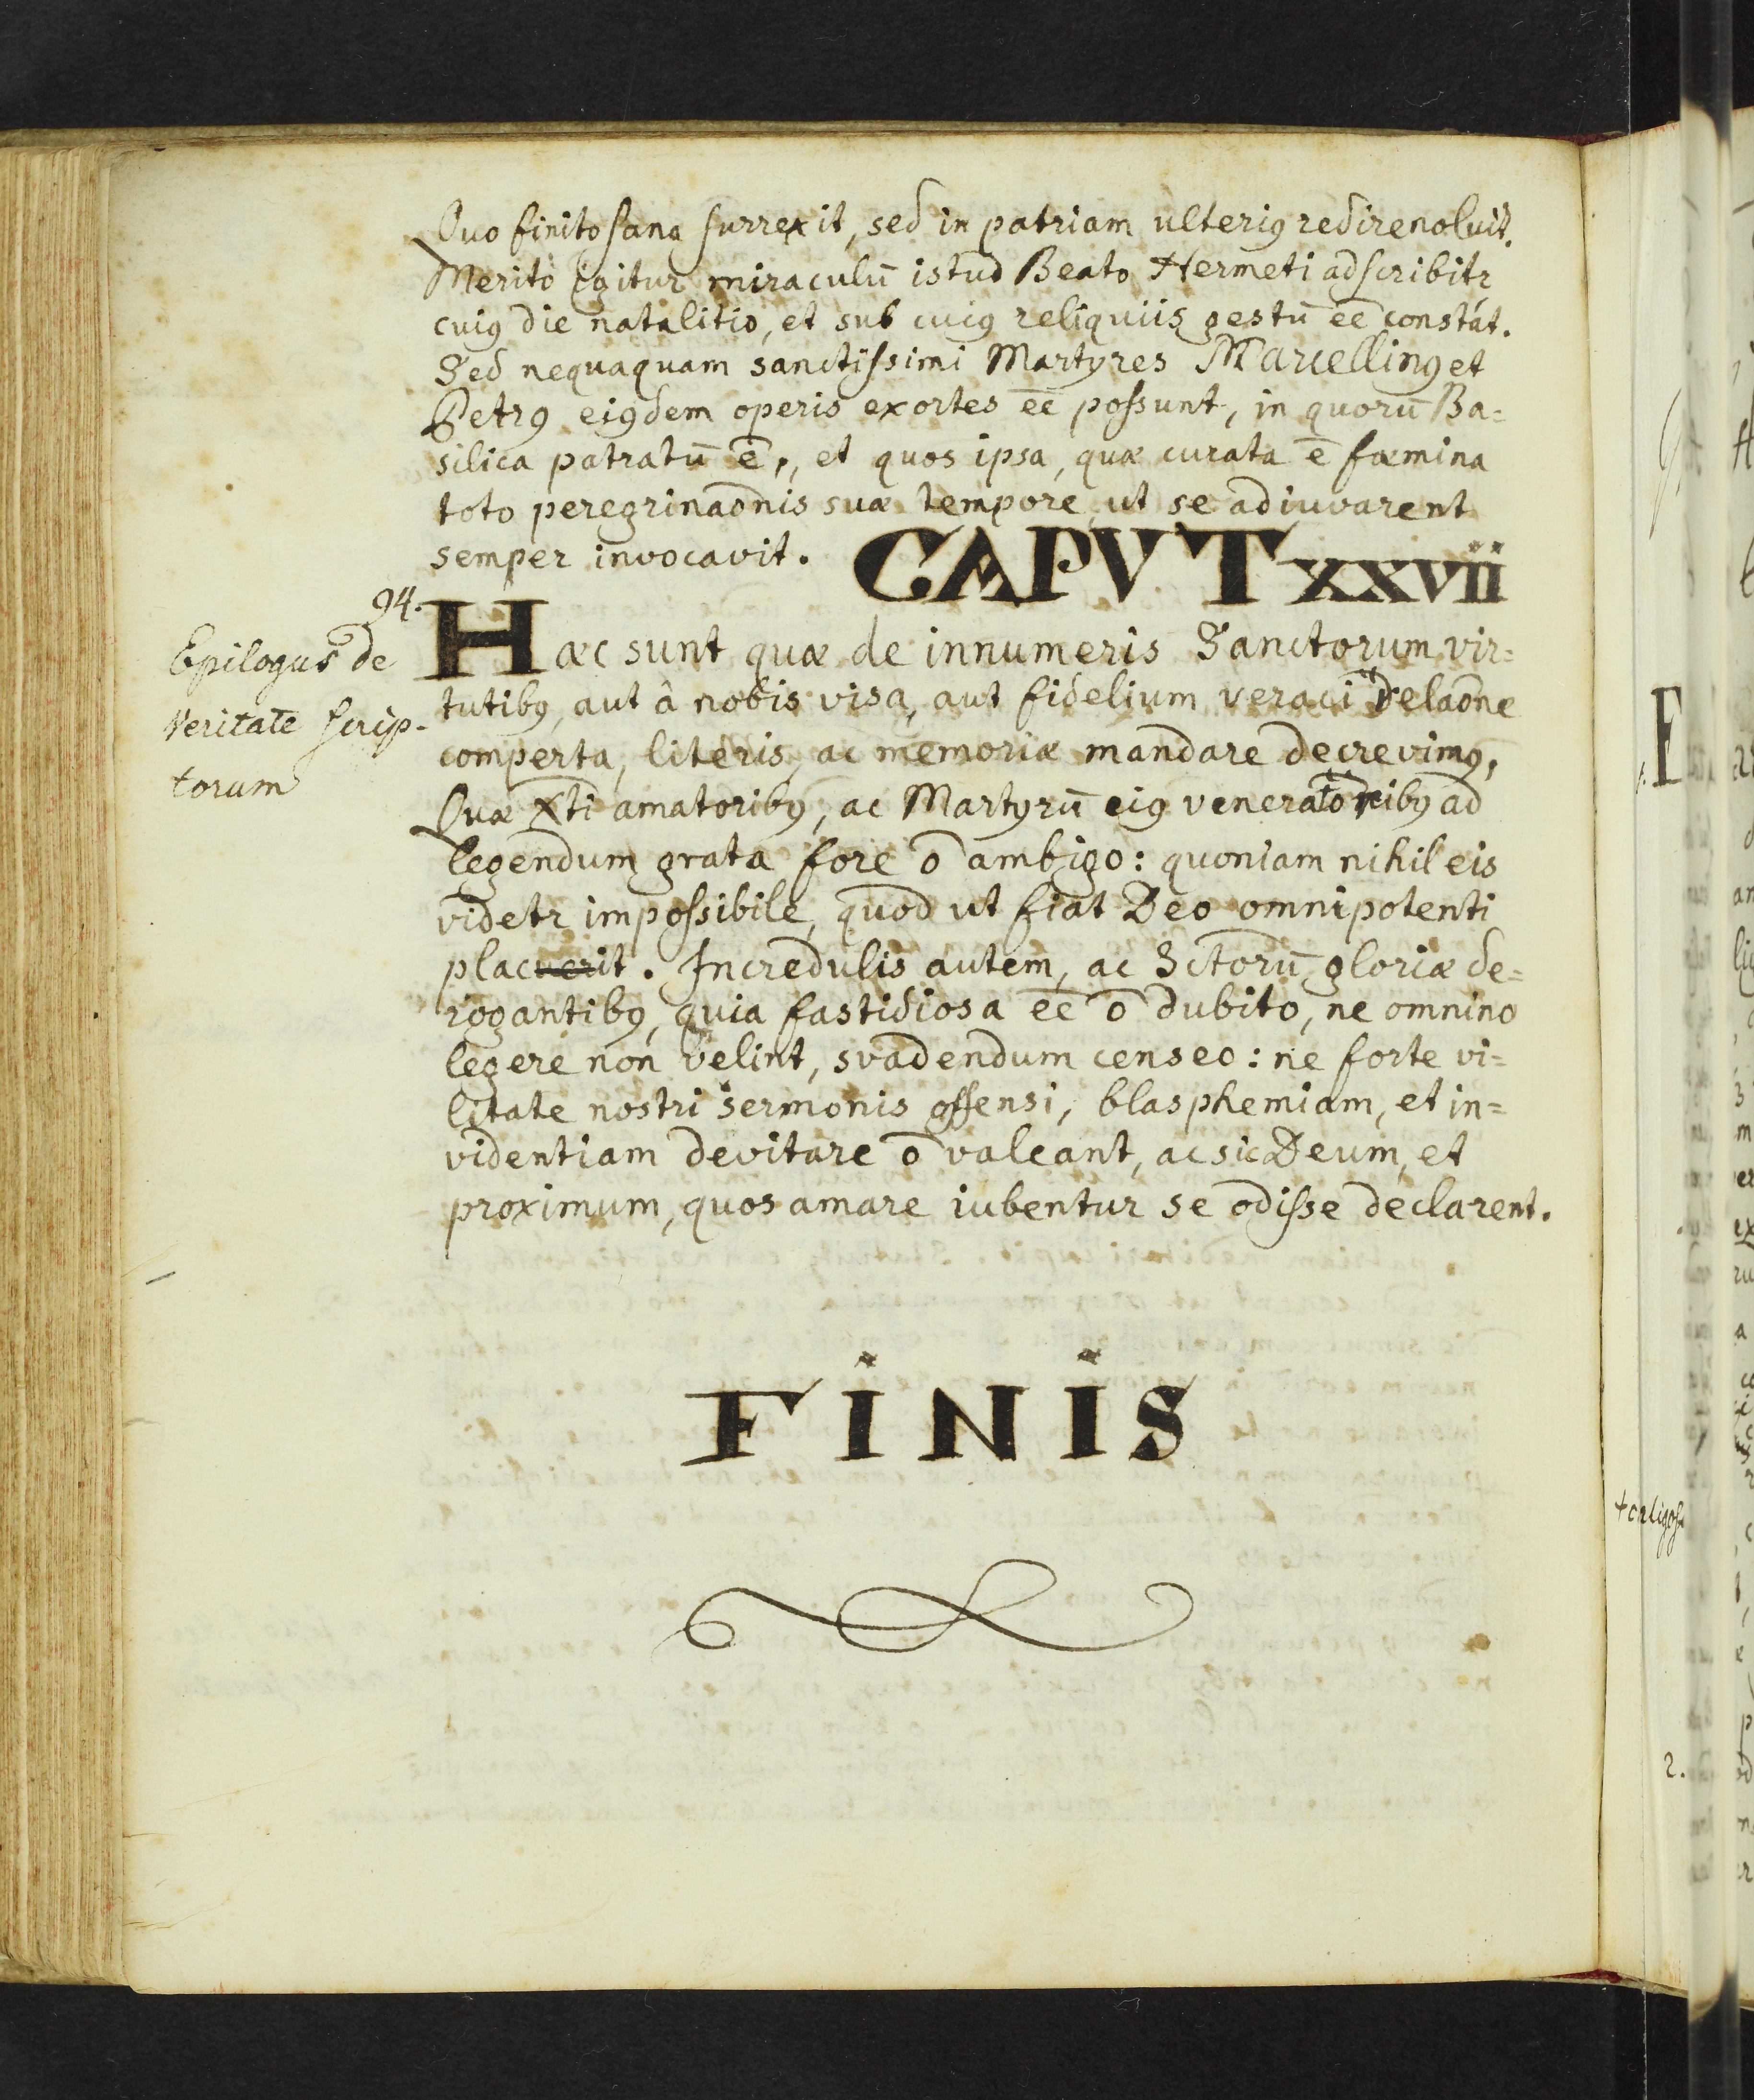 Quo finito sana surrexit, sed in patriam ulteriꝰ redire noluit.
Merito igitur miraculū istud Beato Hermeti adscribitr
cuiꝰ die natalitio, et sub cuiꝰ reliquiis gestū ēē constat.
Sed nequaquam sanctissimi Martyres Marcellinꝰ et
Petrꝰ eiꝰdem operis exortes ēē possunt, in quorū Ba=
silica patratū ē, et quos ipsa, quæ curata ē fœmina
toto peregrinaōnis suæ tempore, ut se adiuvarent
semper invocavit.
CAPVT XXVII
94.
Epilogus de
veritate scrip-
torum
Hæc sunt quæ de innumeris Sanctorum vir=
tutibꝰ, aut â nobis visa, aut fidelium veraci relaōne
comperta, literis, ac memoriæ mandare decrevimꝰ,
Quæ Xti amatoribꝰ, ac Martyrū eiꝰ veneratoribꝰ ad
legendum grata fore ō ambigo: quoniam nihil eis
videtr impossibile, quod ut fiat Deo omnipotenti
placuerit. Incredulis autem, ac Sctorū gloriæ de=
rogantibꝰ, quia fastidiosa ēē ō dubito, ne omnino
legere non velint, svadendum censeo: ne forte vi=
litate nostri sermonis offensi, blasphemiam, et in=
videntiam devitare ō valeant, ac sic Deum, et
proximum, quos amare iubentur se odisse declarent.
FINIS